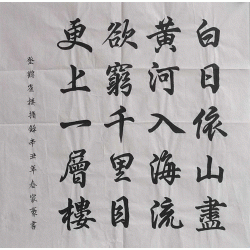 白日依山盡
黃河入海流
欲窮千里目
更上一層樓
登鸛雀樓 錄辛丑年春 書